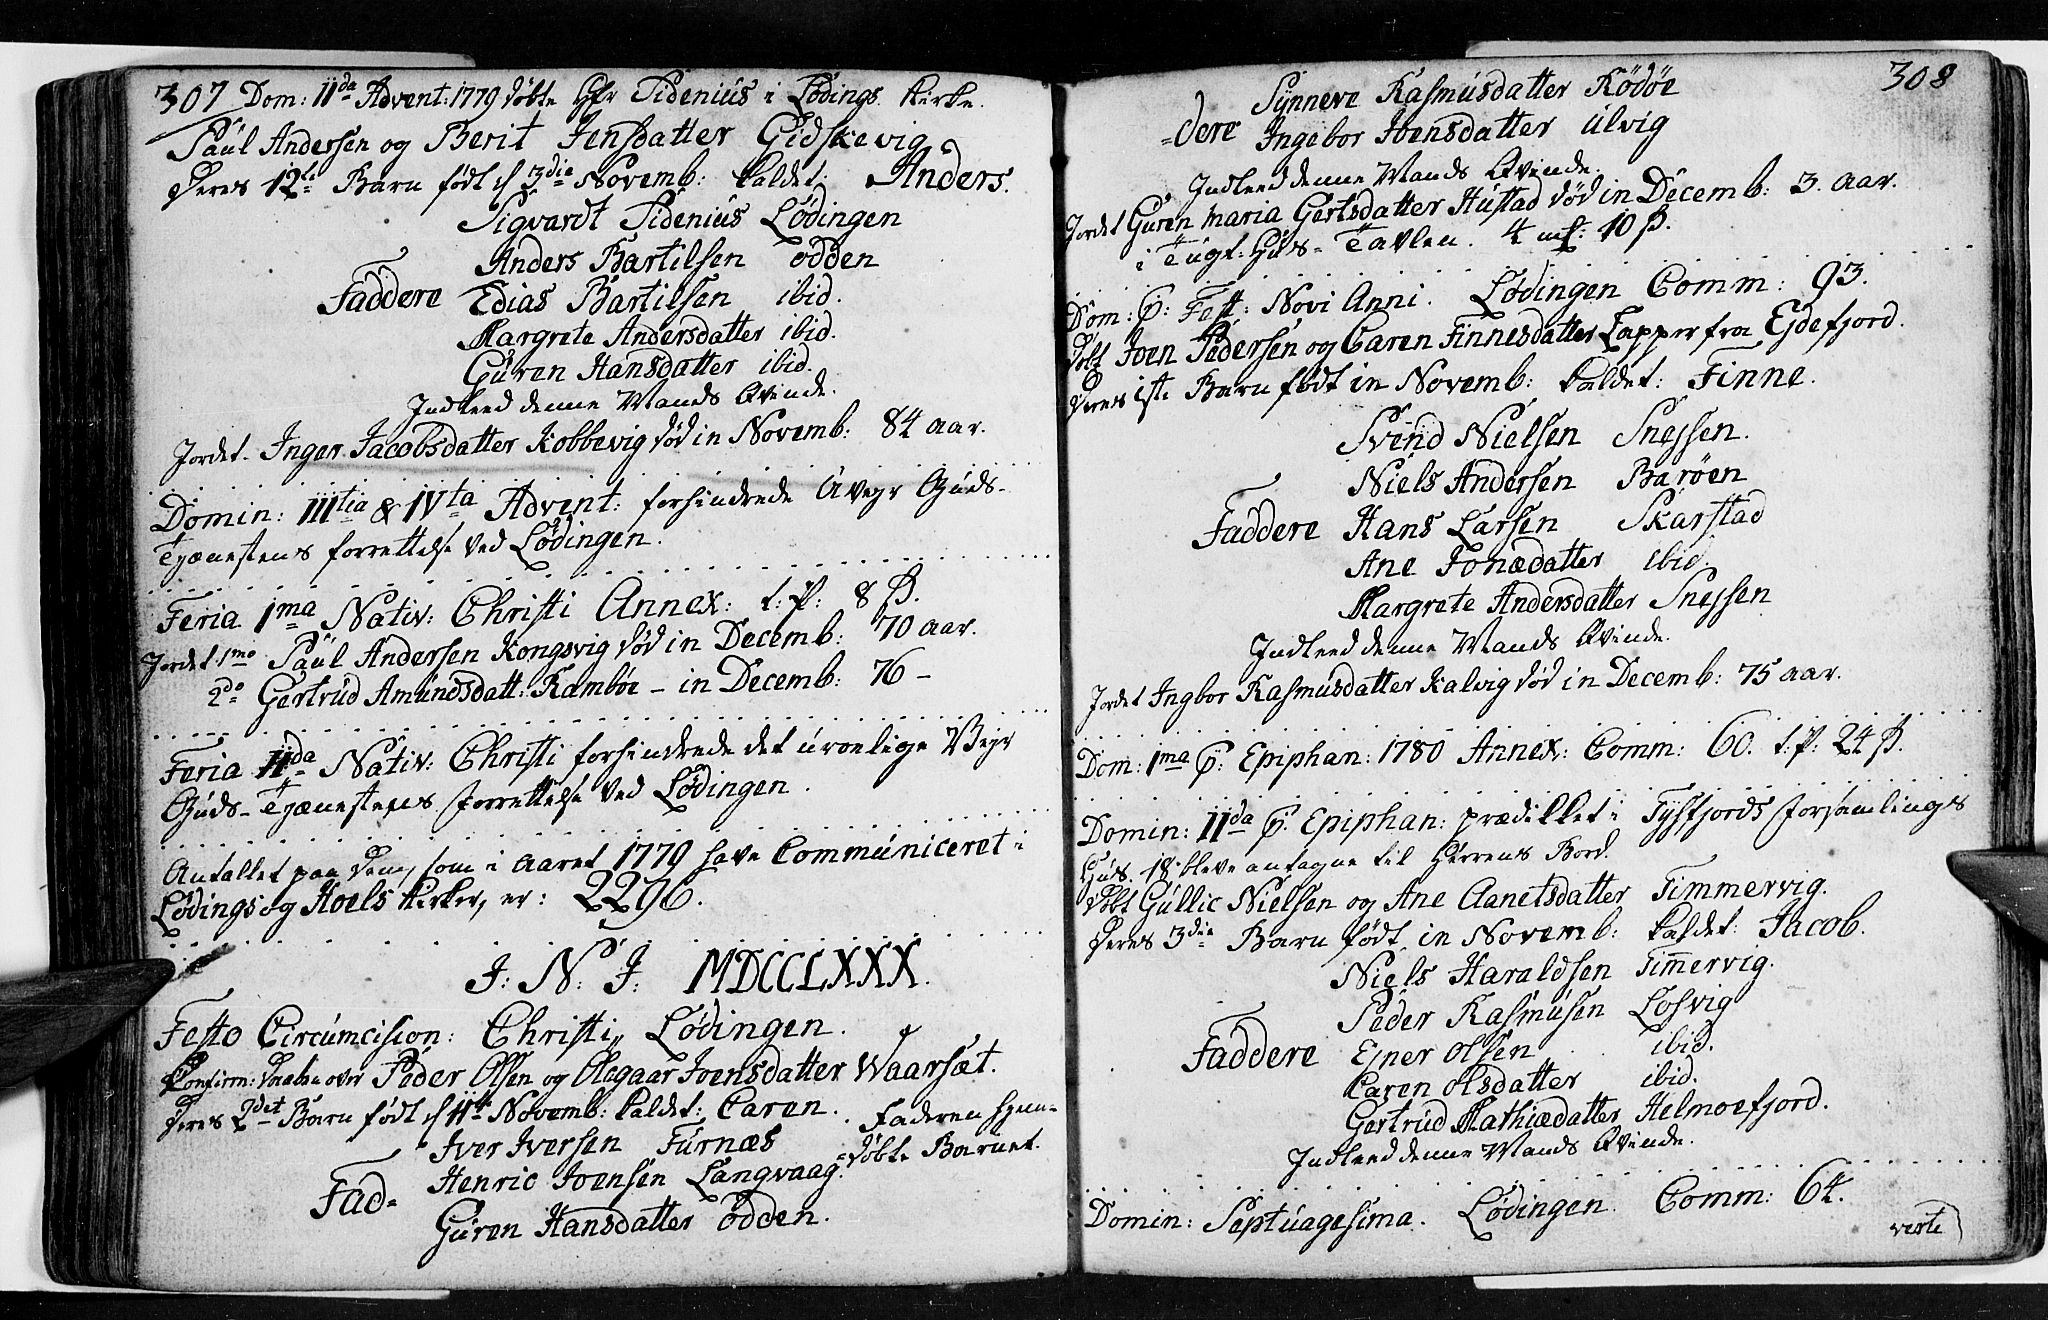 307 Dom: IIda Advent: 1779 døbte Hr Sidenius i Lødings Kirke.
Paul Andersen og Berit Jensdatter Gidskevig
Deres 12te Barn født d 3die Novemb: kaldet: Anders.
Sigvardt Sidenius Lødingen
Anders Bartilsen Odden
Faddere Edias Bartilsen ibid.
Margrete Andersdatter ibid.
Guren Hansdatter ibid.
Indleed denne Mands Qvinde.
Jordet Inger Jacobsdatter Kobbevig død in Novemb: 84 aar.
Domin: IIItia & IVta Advent: forhindrede Uvejr Guds-
Tjænestens forrettelse ved Lødingen.
Feria 1ma Nativ: Christi Annex: t: P: 8 ß.
Jordet 1mo Paul Andersen Kongsvig død in Decemb: 70 aar.
2do Gertrud Amundsdatt: Rambøe - in Decemb: 76 -
Feria IIda Nativ: Christi forhindrede det uroelige Vejr
Guds-Tjænestens forrettelse ved Lødingen.
Antallet paa dem, som i Aaret 1779 have Communiceret i
Lødings og Hoels Kirker, er: 2296.
J: N: J: MDCCLXXX.
Festo Circumcision: Christi Lødingen.
Confirm: Daaben over Peder Olsen og Olegaar Joensdatter Waarsæt.
Deres 2det Barn født d 11te Novemb: kaldet: Caren. Faderen hjem-
Iver Iversen Furnæs =døbte Barnet.
Fad= Henric Joensen Langvaag.
Guren Hansdatter Odden.
308
Synneve Rasmusdatter Rödöe
=dere Ingebor Joensdatter Ulvig
Indleed denne Mands Qvinde.
Jordet Guren Maria Gertsdatter Hustad død in Decemb: 3. aar.
i Tugt-Huus-Tavlen. 4 mk: 10 ß.
Dom: p: Fest: Novi Anni. Lødingen Comm: 93.
Døbt Joen Pedersen og Caren Finnesdatter Lapper fra Ejdefjord.
Deres 1ste Barn født in Novemb: kaldet: Finne.
Svend Nielsen Snejsen.
Niels Andersen Barøen
Faddere Hans Larsen Skarstad
Ane Jonædatter ibid.
Margrete Andersdatter Snejsen
Indleed denne Mands Qvinde.
Jordet Ingbor Rasmusdatter Kalvig død in Decemb: 75 aar.
Dom: 1ma p: Epiphan: 1780 Annex: Comm: 60. t: P: 24 ß.
Domin: IIda p: Epiphan: prædikket i Tysfjords Forsamlings
Huus. 18 bleve antagne til Herrens Bord.
Døbt Gullic Nielsen og Ane Aanetsdatter Timmervig.
Deres 3die Barn født in Novemb: kaldet: Jacob.
Niels Haraldsen Tim̄ervig.
Peder Rasmusen Losvig
Faddere Ejner Olsen ibid.
Caren Olsdatter ibid.
Gertrud Mathiædatter Helmoefjord.
Indleed denne Mands Qvinde.
Domin: Septuagesima. Lødingen. Comm: 64.
verte